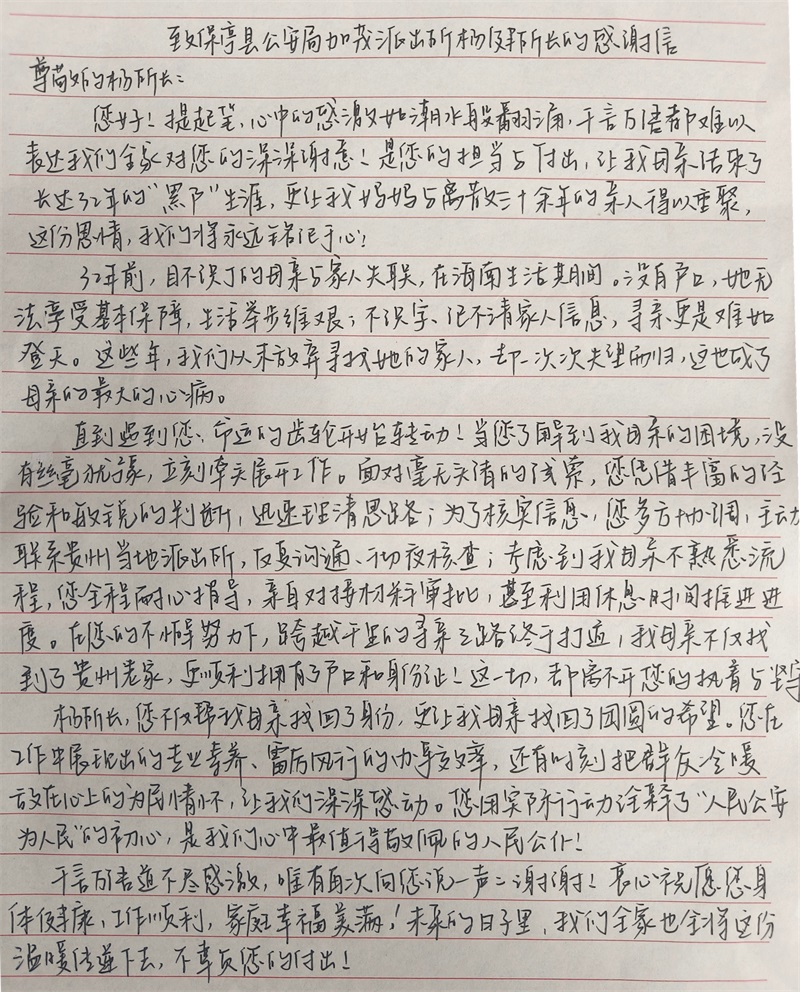 致保亭县公安局加茂派出所杨俊邦所长的感谢信
尊敬的杨所长：
您好！提起笔，心中的感激如潮水般翻涌，千言万语都难以
表达我们全家对您的深深谢意！是您的担当与付出，让我母亲结束了
长达32年的“黑户”生涯，更让我妈妈与离散三十余年的亲人得以重聚，
这份恩情，我们将永远铭记于心！
32年前，目不识丁的母亲与家人失联，在海南生活其间。没有户口，她无
法享受基本保障，生活举步维艰；不识字、记不清家人信息，寻亲更是难如
登天。这些年，我们从未放弃寻找她的家人，却一次次失望而归，这也成了
母亲的最大的心病。
直到遇到您、命运的齿轮开始转动！当您了解到我母亲的困境，没
有丝毫犹豫，立刻牵头展开工作。面对毫无头绪的线索，您凭借丰富的经
验和敏锐的判断，迅速理清思路；为了核实信息，您多方协调，主动
联系贵州当地派出所，反复沟通、彻夜核查；考虑到我母亲不熟悉流
程，您全程耐心指导，亲自对接材料审批，甚至利用休息时间推进进
度。在您的不懈努力下，跨越千里的寻亲之路终于打通，我母亲不仅找
到了贵州老家，更顺利拥有了户口和身份证！这一切，都离不开您的执着与坚守
杨所长，您不仅帮我母亲找回了身份，更让我母亲找回了团圆的希望。您在
工作中展现出的专业素养、雷厉风行的办事效率，还有时刻把群众冷暖
放在心上的为民情怀，让我们深深感动。您用实际行动诠释了“人民公安
为人民”的初心，是我们心中最值得敬佩的人民公仆！
千言万语道不尽感激，唯有再次向您说一声：谢谢！衷心祝愿您身
体健康，工作顺利，家庭幸福美满！未来的日子里，我们全家也会将这份
温暖传递下去，不辜负您的付出！